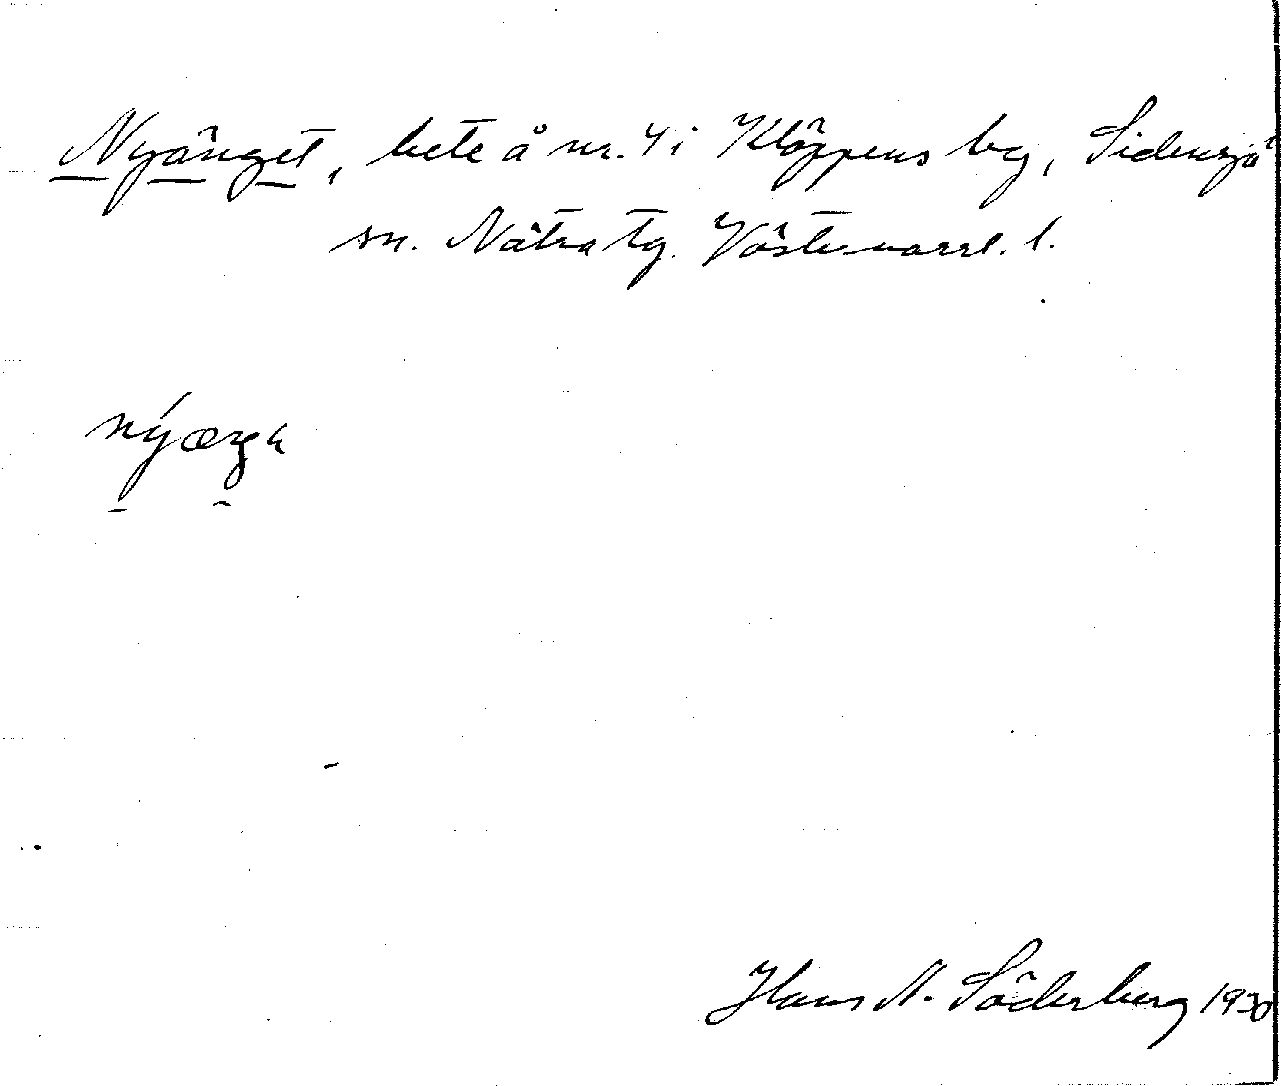 Nyänget, bete å nr. 4 i Kläppens by, Sidensjö
sn. Nätra tg. Västernorrl. l.
Hans A. Söderberg 1930